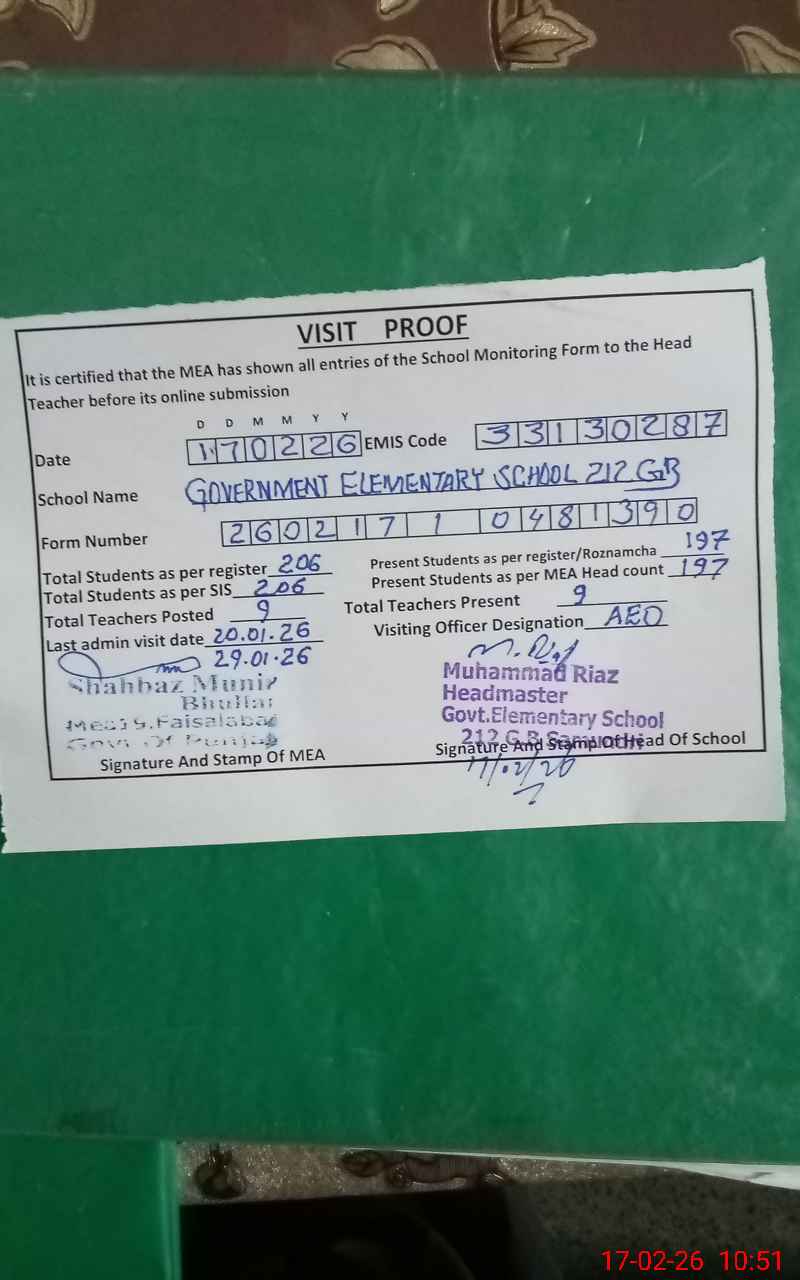 VISIT PROOF
It is certified that the MEA has shown all entries of the School Monitoring Form to the Head
Teacher before its online submission
D D M M Y Y
Date 170226 EMIS Code 33130287
School Name GOVERNMENT ELEMENTARY SCHOOL 212 GB
Form Number 2602171 0481390
Total Students as per register 206 Present Students as per register/Roznamcha 197
Total Students as per SIS 206 Present Students as per MEA Head count 197
Total Teachers Posted 9 Total Teachers Present 9
Last admin visit date 20.01.26 Visiting Officer Designation AEO
29.01.26
Shahbaz Munir
Bhullar
Mea Faisalabad
Govt Of Punjab
Signature And Stamp Of MEA
Muhammad Riaz
Headmaster
Govt.Elementary School
212 G.B
Signature And Stamp Of Head Of School
17/02/26
17-02-26 10:51